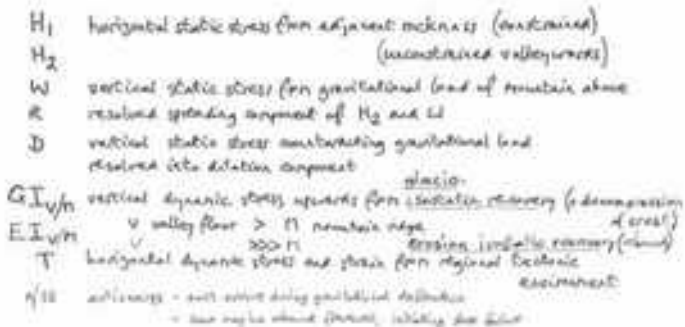 H1 horizontal static stress from adjacent rockmass (constrained)
H2 (unconstrained valleywards)
W vertical static stress from gravitational load of mountain above
R resolved spreading component of H2 and W
D vertical static stress counteracting gravitational load
resolved into dilation component
glacio-
GI v/n vertical dynamic stress upwards from isostatic recovery (+ decompression
of crust)
EI v/n v valley floor > n mountain ridge
v >>> n erosion isostatic recovery
T horizontal dynamic stress and strain from regional tectonic
environment
during gravitational